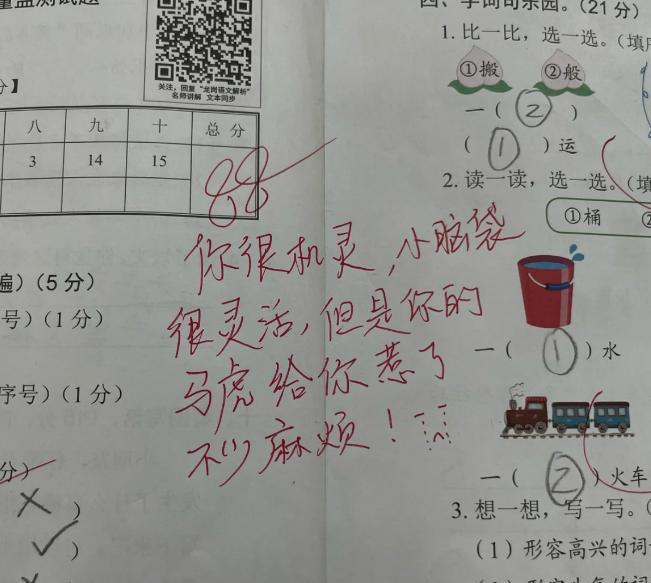 量监测试题
关注,回复"龙岗语文解析"
名师讲解 文本同步
分】
八 九 十 总 分
3 14 15
88
你很机灵,小脑袋
很灵活,但是你的
马虎给你惹了
不少麻烦!
遍)(5 分)
号)(1 分)
序号)(1 分)
分)
)
)
四、字词句乐园。(21 分)
1. 比一比,选一选。(填序
①搬 ②般
一( ② )
( ① )运
2. 读一读,选一选。(填
①桶 ②
一( ① )水
一( ② )火车
3. 想一想,写一写。(
(1)形容高兴的词